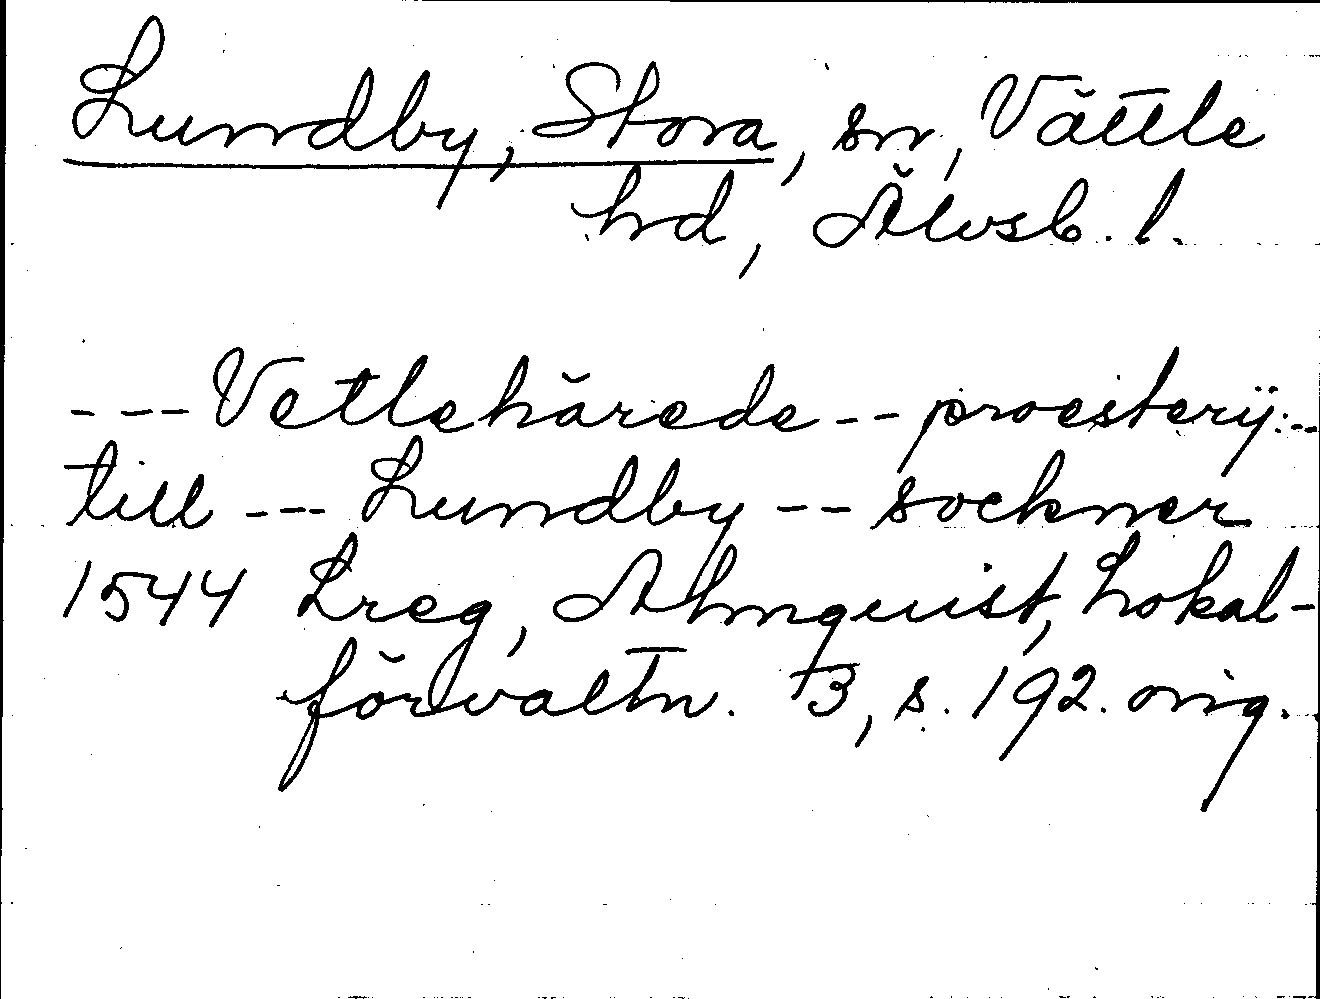 Lundby, Stora, sn, Vättle
hd, Älvsb. l.
--- Vetlehärede -- proesterÿ --
till --- Lundby -- sockner
1544 Lreg, Almquist, Lokal-
förvaltn. 3, s. 192. orig.